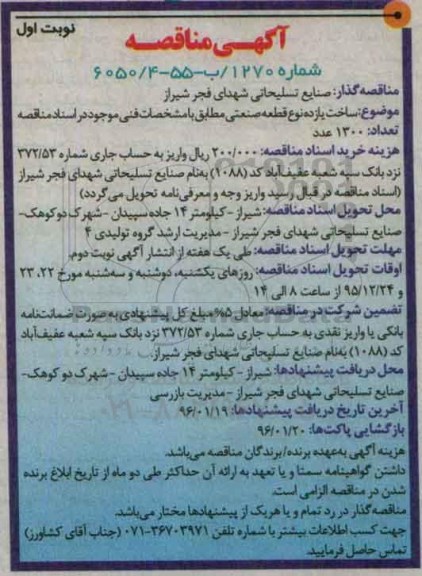 نوبت اول
آگهی مناقصه
شماره ۱۲۷۰/ب-۵۵-۶۰۵۰/۴
مناقصه‌گذار: صنایع تسلیحاتی شهدای فجر شیراز
موضوع: ساخت یازده نوع قطعه صنعتی مطابق با مشخصات فنی موجود در اسناد مناقصه
تعداد: ۱۳۰۰ عدد
هزینه خرید اسناد مناقصه: ۲۰۰/۰۰۰ ریال واریز به حساب جاری شماره ۳۷۲/۵۳
نزد بانک سپه شعبه عفیف‌آباد کد (۱۰۸۸) به‌نام صنایع تسلیحاتی شهدای فجر شیراز
(اسناد مناقصه در قبال رسید واریز وجه و معرفی‌نامه تحویل می‌گردد)
محل تحویل اسناد مناقصه: شیراز - کیلومتر ۱۴ جاده سپیدان - شهرک دوکوهک-
صنایع تسلیحاتی شهدای فجر شیراز - مدیریت ارشد گروه تولیدی ۴
مهلت تحویل اسناد مناقصه: طی یک هفته از انتشار آگهی نوبت دوم.
اوقات تحویل اسناد مناقصه: روزهای یکشنبه، دوشنبه و سه‌شنبه مورخ ۲۲، ۲۳
و ۹۵/۱۲/۲۴ از ساعت ۸ الی ۱۴
تضمین شرکت در مناقصه: معادل ۵% مبلغ کل پیشنهادی به صورت ضمانت‌نامه
بانکی یا واریز نقدی به حساب جاری شماره ۳۷۲/۵۳ نزد بانک سپه شعبه عفیف‌آباد
کد (۱۰۸۸) به‌نام صنایع تسلیحاتی شهدای فجر شیراز
محل دریافت پیشنهادها: شیراز - کیلومتر ۱۴ جاده سپیدان - شهرک دو کوهک-
صنایع تسلیحاتی شهدای فجر شیراز - مدیریت بازرسی
آخرین تاریخ دریافت پیشنهادها: ۹۶/۰۱/۱۹
بازگشایی پاکت‌ها: ۹۶/۰۱/۲۰
هزینه آگهی به‌عهده برنده/برندگان مناقصه می‌باشد.
داشتن گواهینامه سمتا و یا تعهد به ارائه آن حداکثر طی دو ماه از تاریخ ابلاغ برنده
شدن در مناقصه الزامی است.
مناقصه‌گذار در رد تمام و یا هر یک از پیشنهادها مختار می‌باشد.
جهت کسب اطلاعات بیشتر با شماره تلفن ۳۶۷۰۳۹۷۱-۰۷۱ (جناب آقای کشاورز)
تماس حاصل فرمایید.